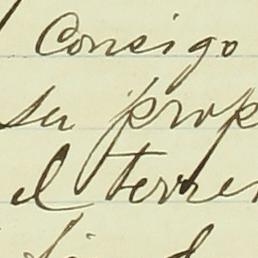 Consigo
su prop
el terre